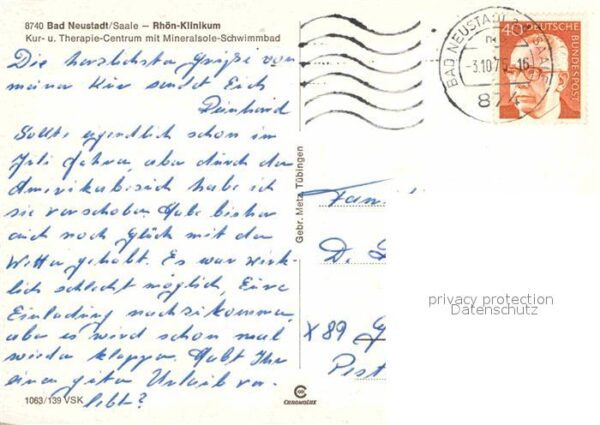 8740 Bad Neustadt/Saale – Rhön-Klinikum
Kur- u. Therapie-Centrum mit Mineralsole-Schwimmbad
Die herzlichsten Grüße von
meiner Kur sendet Euch
Reinhard
Sollte eigentlich schon im
Juli fahren, aber durch den
Amerikabesuch habe ich
sie verschoben. Habe bisher
auch noch Glück mit dem
Wetter gehabt. Es war wirk-
lich schlecht möglich, Eure
Einladung nachzukommen,
aber es wird schon mal
wieder klappen. Habt Ihr
einen guten Urlaub ver-
lebt?
1063/139 VSK
Gebr. Metz Tübingen
CHROMOLUX
BAD NEUSTADT SAALE
-3.10.7
874
40
DEUTSCHE
BUNDESPOST
Fam
D.
X 89 G
Pist
privacy protection
Datenschutz